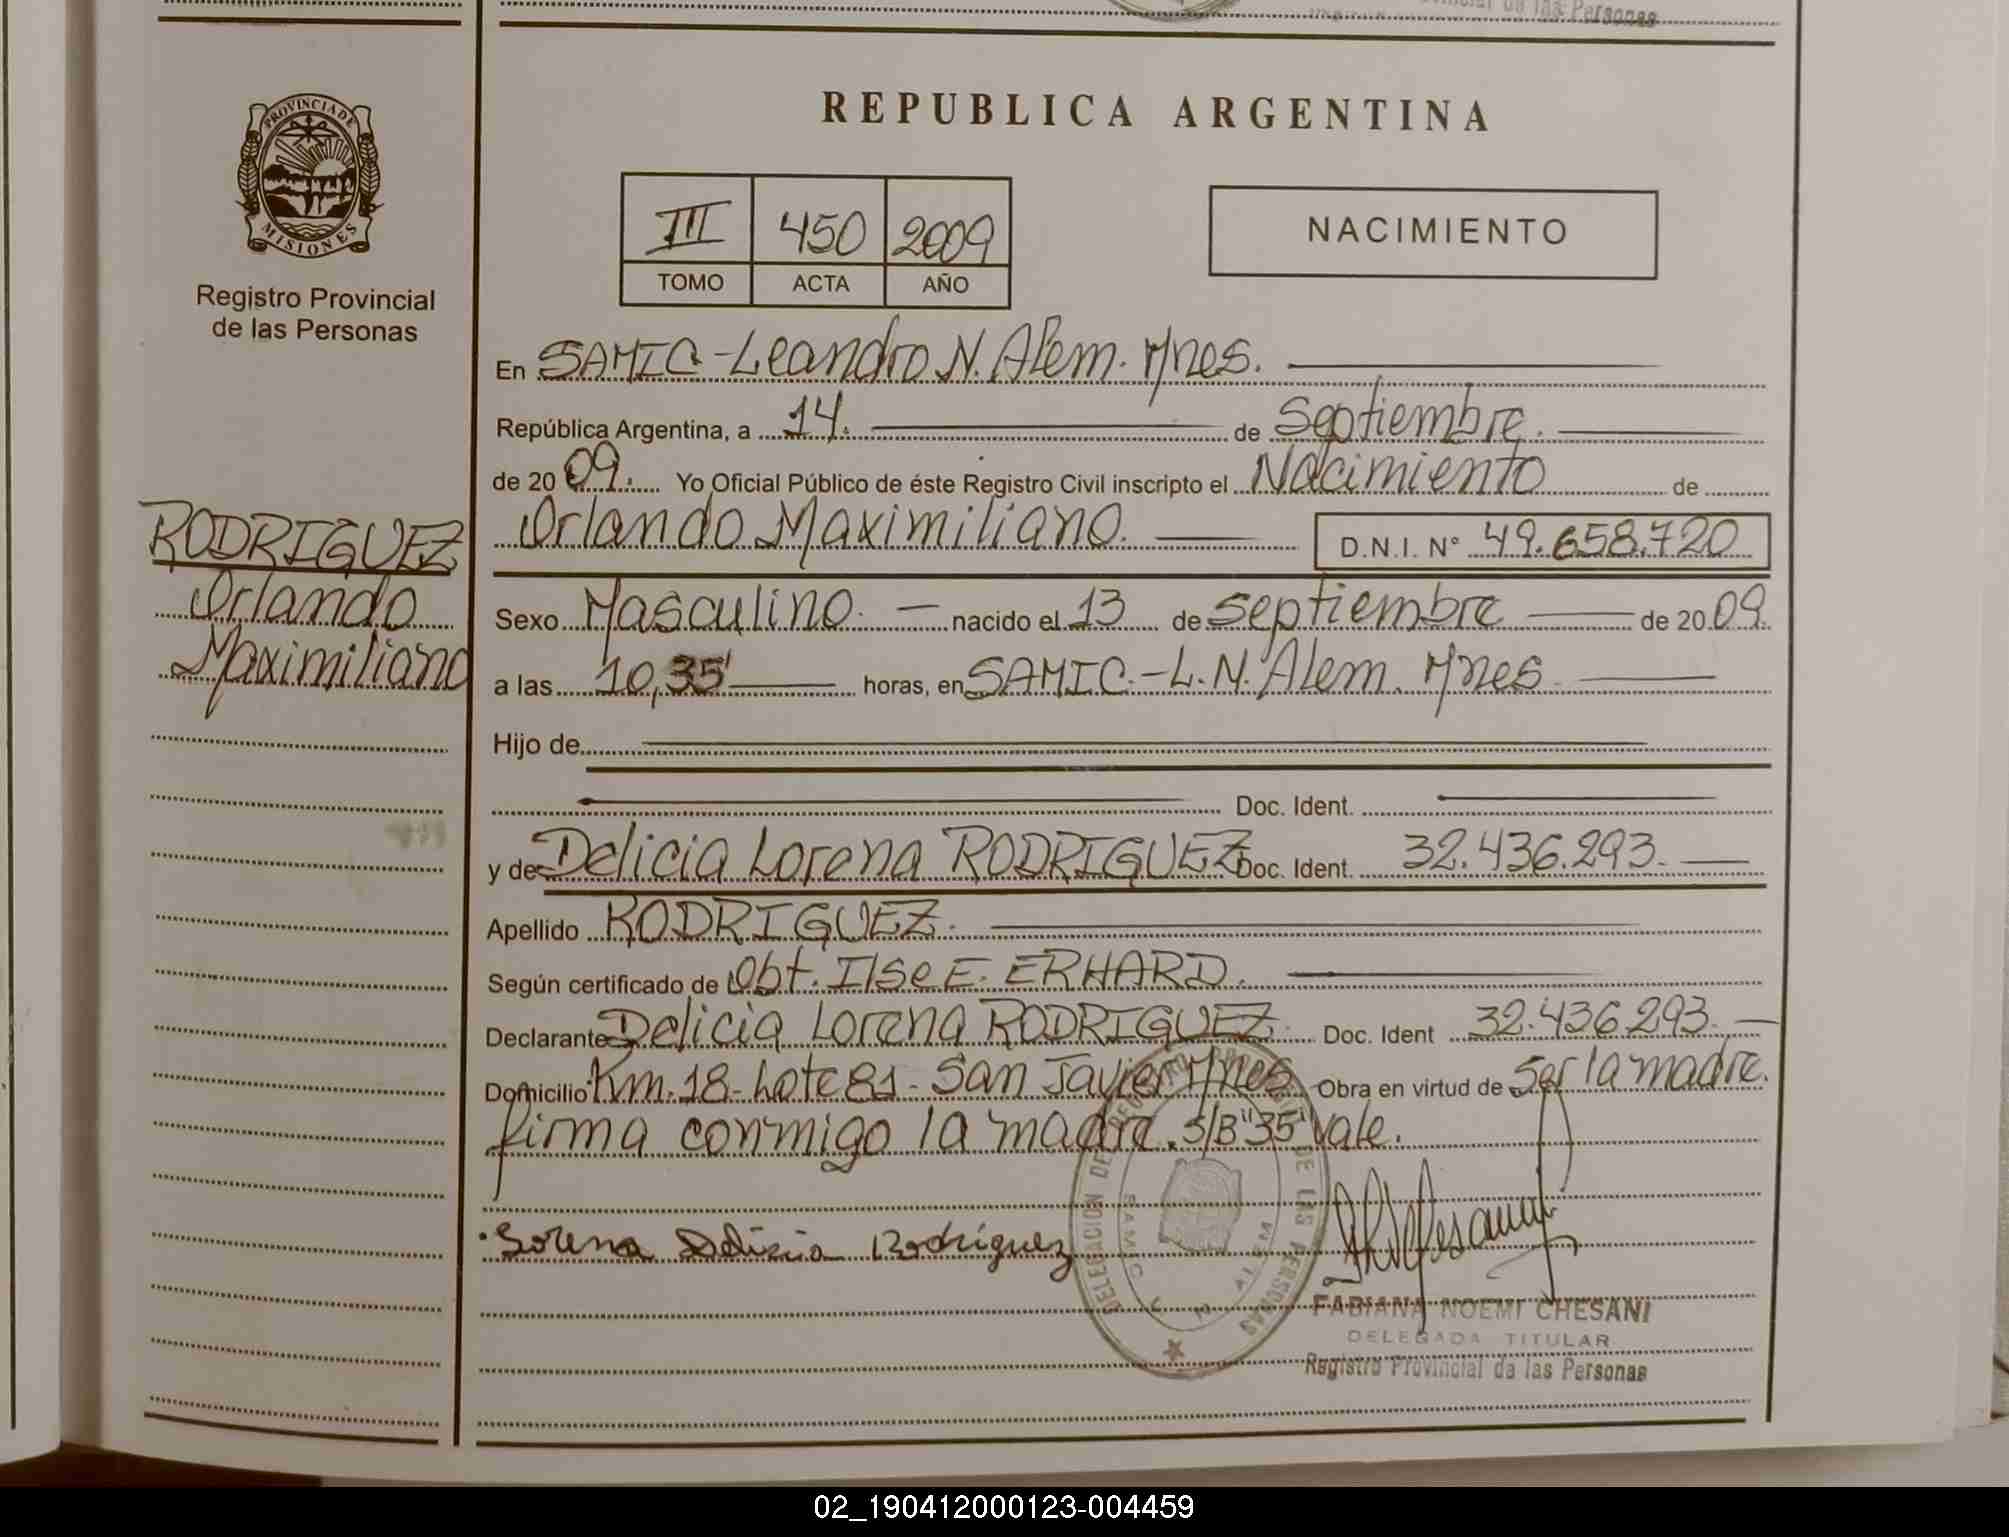 de las Personas
PROVINCIA DE
MISIONES
Registro Provincial
de las Personas
RODRIGUEZ
Orlando
Maximiliano
REPUBLICA ARGENTINA
III 450 2009
TOMO ACTA AÑO
NACIMIENTO
En SAMIC - Leandro N. Alem. Mnes.
República Argentina, a 14. de Septiembre.
de 20 09. Yo Oficial Público de éste Registro Civil inscripto el Nacimiento de
Orlando Maximiliano. D.N.I. N° 49.658.720
Sexo Masculino. nacido el 13 de Septiembre de 20 09.
a las 10,35' horas, en SAMIC. - L. N. Alem. Mnes
Hijo de
Doc. Ident.
y de Delicia Lorena RODRIGUEZ Doc. Ident. 32.436.293.
Apellido RODRIGUEZ.
Según certificado de Obt. Ilse E. ERHARD.
Declarante Delicia Lorena RODRIGUEZ. Doc. Ident 32.436.293.
Domicilio Km. 18 - Lote 81 - San Javier Mnes Obra en virtud de Ser la madre.
firma conmigo la madre. S/B "35" Vale.
Lorena Delicia Rodríguez
DELEGACION DEL REGISTRO PROVINCIAL DE LAS PERSONAS
SAMIC L. N. ALEM
FABIANA NOEMI CHESANI
DELEGADA TITULAR
Registro Provincial de las Personas
02_190412000123-004459